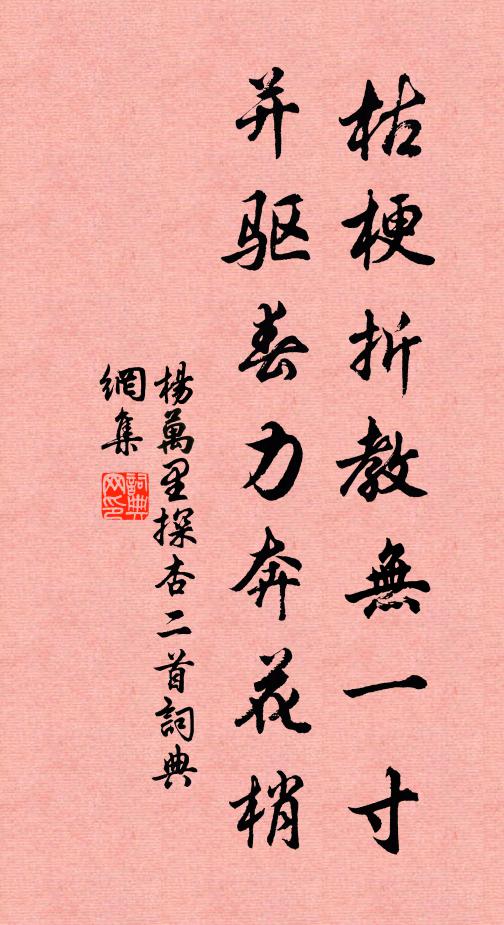 枯梗折教無一寸
并驱春力奔花梢
楊萬里探杏二首詞典
網集
詞典网印